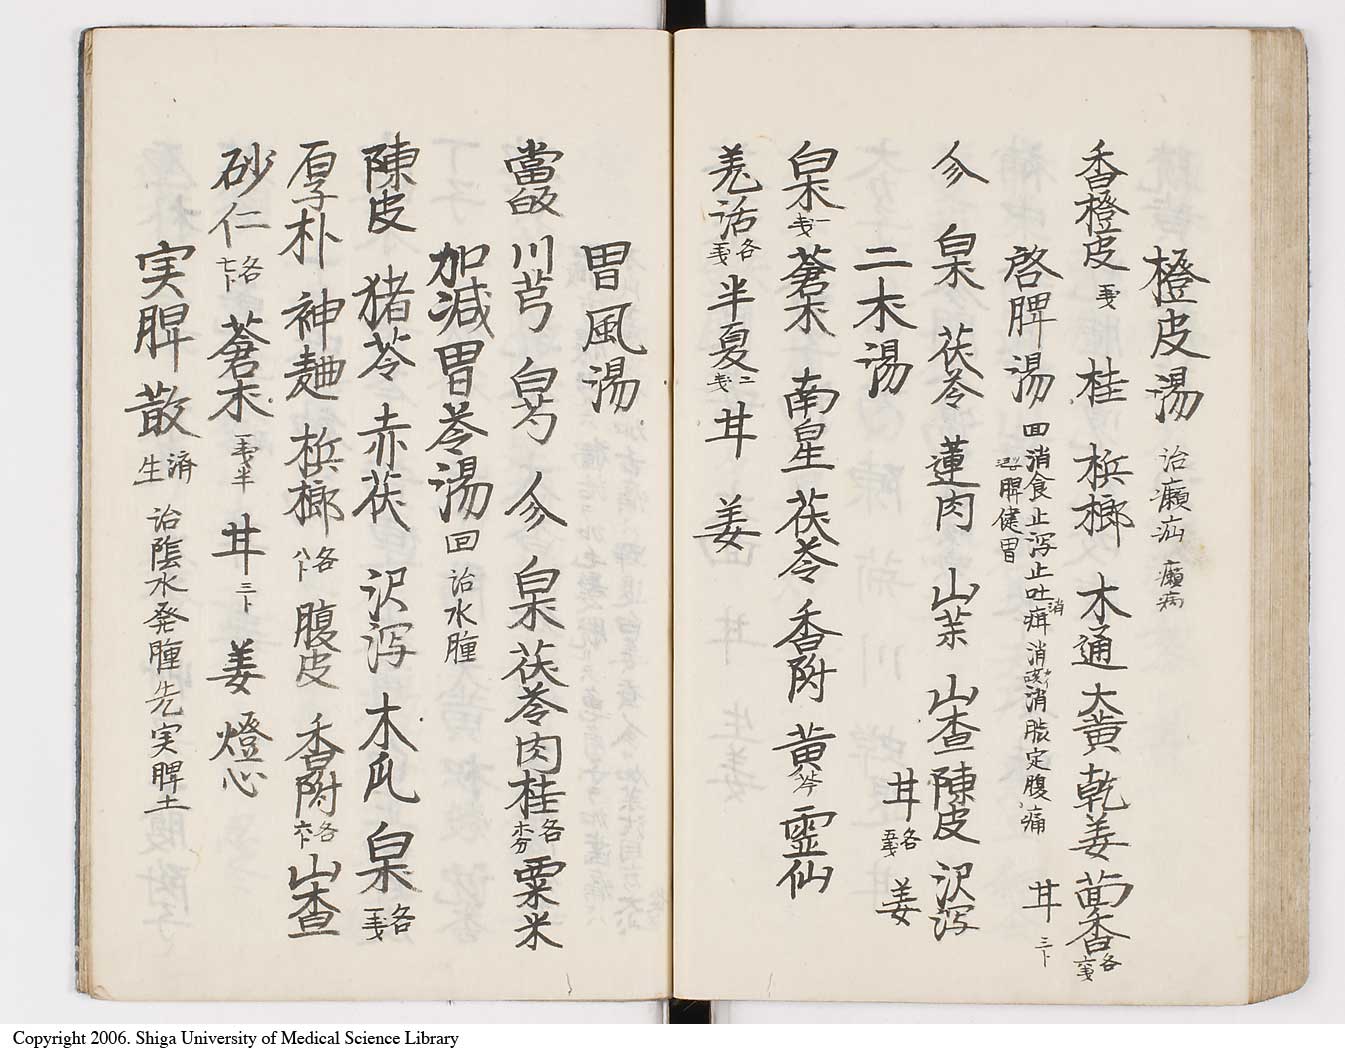 橙皮湯 治癲疝 癩病
香橙皮 桂 梹榔 木通 大黄 乾姜 茴香 各
啓脾湯 回 消食止瀉止吐 消 消 消脹定腹痛 脾健胃 甘 三卜
参 白朮 茯苓 蓮肉 山茱 山査 陳皮 沢瀉
二木湯 甘 各 姜
白朮 蒼朮 南星 茯苓 香附 黄芩 霊仙
羌活 各 半夏 甘 姜
胃風湯
當皈 川芎 白芍 参 白朮 茯苓 肉桂 各 粟米
加減胃苓湯 回 治水腫
陳皮 猪苓 赤茯 沢瀉 木瓜 白朮 各
厚朴 神麯 梹榔 各八卜 腹皮 香附 各六卜 山査
砂仁 各七卜 蒼朮 半 甘 三卜 姜 燈心
実脾散 済生 治陰水発腫先実脾土
Copyright 2006. Shiga University of Medical Science Library